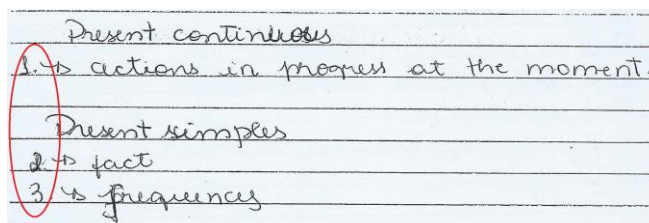 Present continuous
1. ↳ actions in progress at the moment.
Present simples
2. ↳ fact
3. ↳ frequences